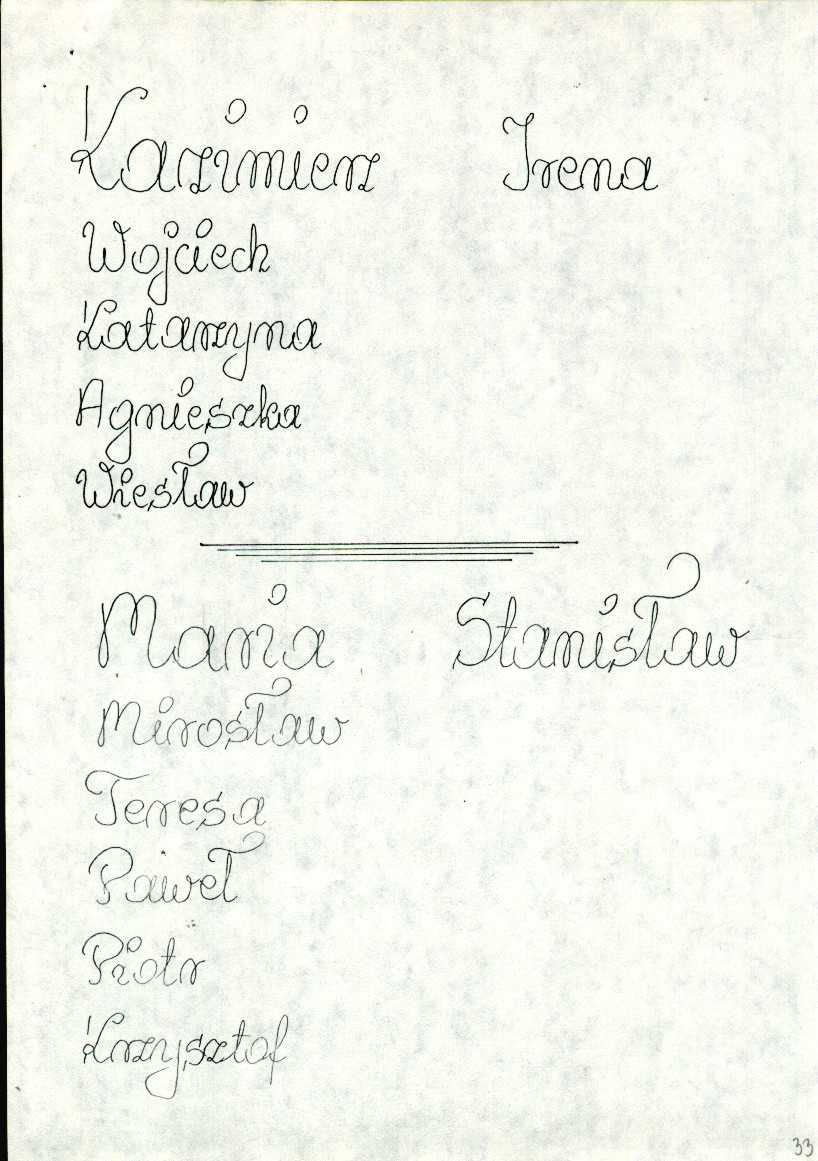 Kazimierz Irena
Wojciech
Katarzyna
Agnieszka
Wiesław
Maria Stanisław
Mirosław
Teresa
Paweł
Piotr
Krzysztof
33